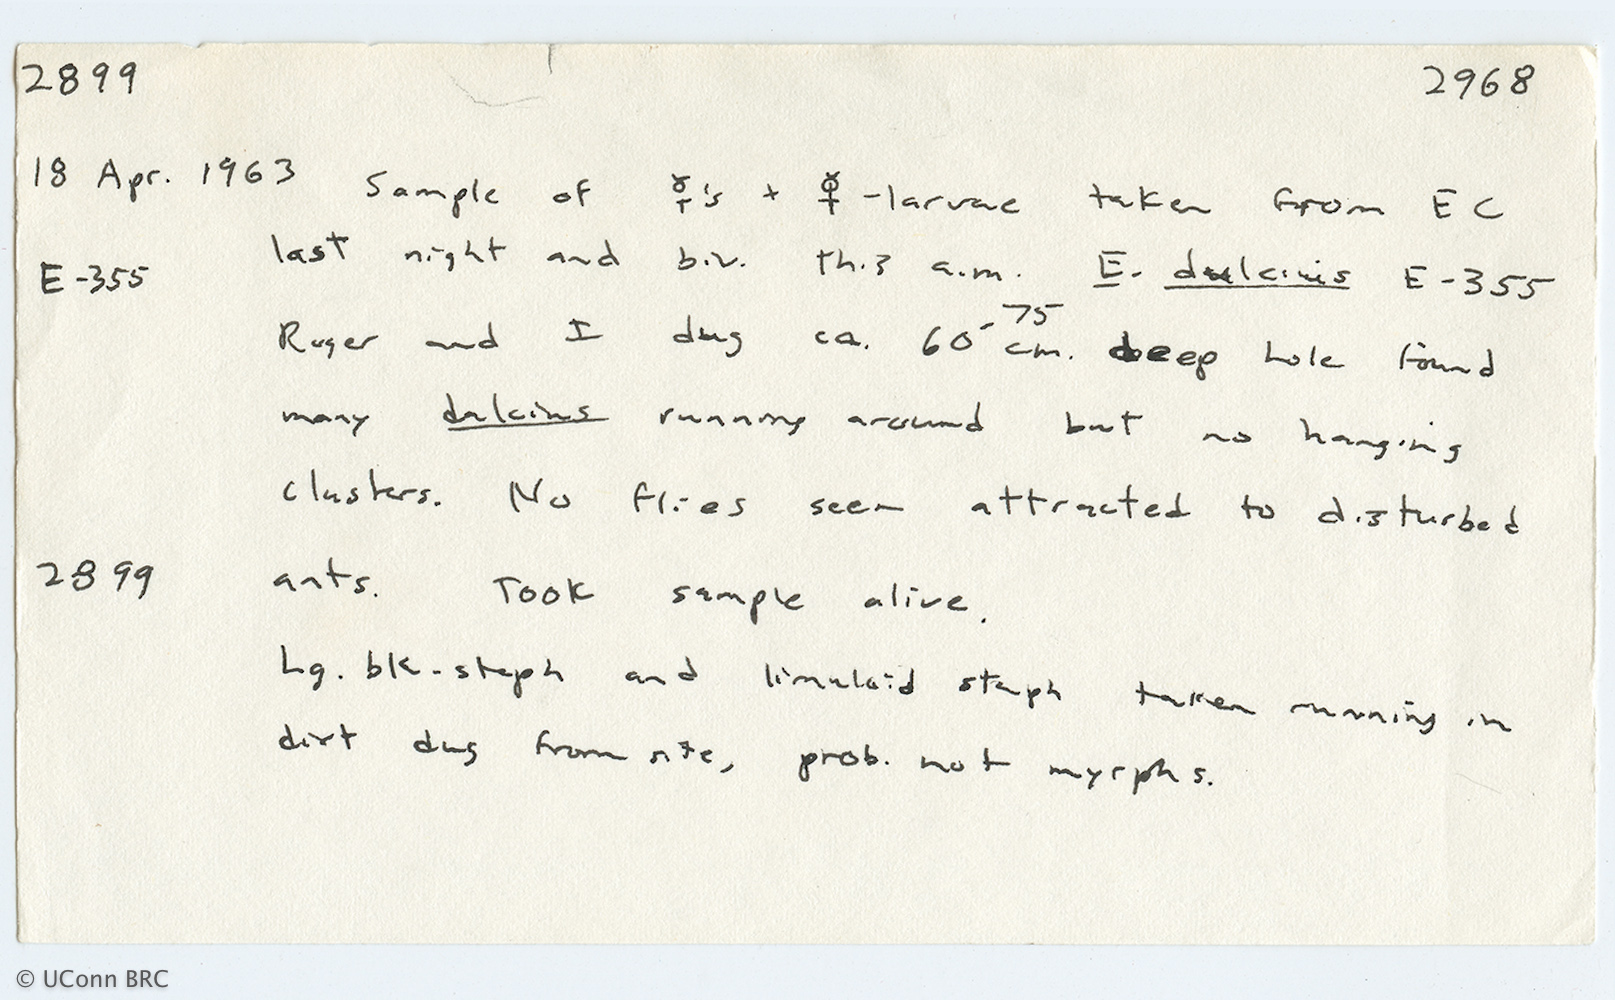 2899 2968
18 Apr. 1963 Sample of ☿'s + ☿-larvae taken from EC
last night and biv. this a.m. E. dulcius E-355
E-355
Roger and I dug ca. 60-75 cm. deep hole found
many dulcius running around but no hanging
clusters. No flies seen attracted to disturbed
2899 ants. Took sample alive.
Lg. blk-staph and limuloid staph taken running in
dirt dug from site, prob. not myrphs.
© UConn BRC